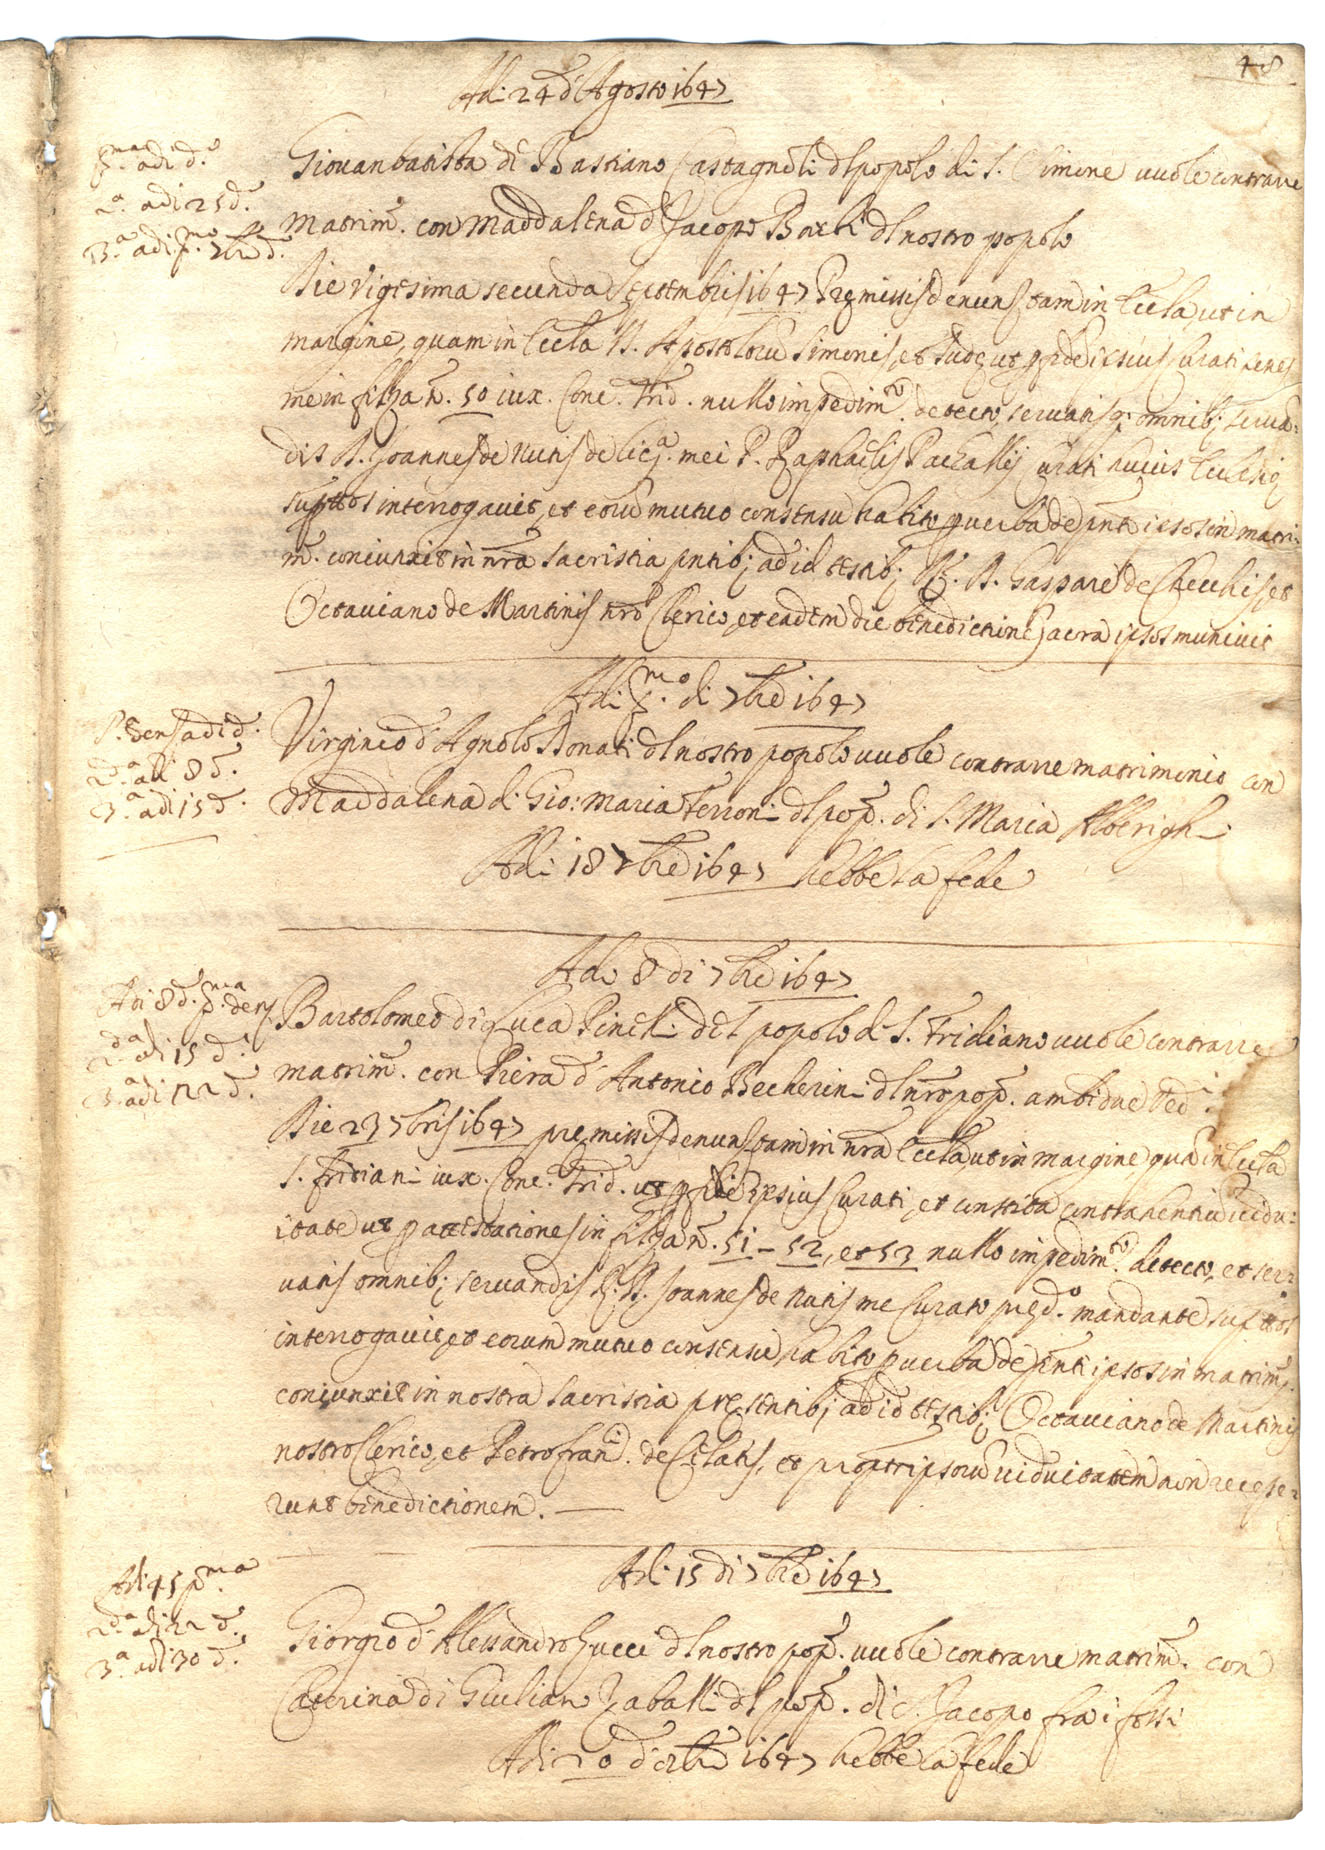 48
Adi 24 d'Agosto 1647
p.ma adi d.o
2.a adi 25 d.o
3.a adi p.mo 7bre d.o
Giovanbatista di Bastiano Castagnoli dl popolo di S. Simone vuole contrarre
matrim.o con Maddalena d' Jacopo Bachi dl nostro popolo
Die vigesima secunda Septembris 1647 Premissis denuns tam in Eccla, ut in
margine, quam in Eccla SS. Apostoloru Simonis, et Jude, ut p fide ipsius Curati penes
me in filza n.o 50 iux. Conc. Trid. nullo impedim.to detecto, servatisq; omnib; servan=
dis R. Joannes de Nutis de lic.a mei P. Raphaelis Curati huius Ecclesie
supttos interrogavit, et eoru mutuo consensu habito p verba de pnti ipsos in matri=
m. coniunxit in nra sacristia pntib; ad id testib; R. Gaspare de Checchis, et
Octaviano de Martinis nro Clerico, et eadem die benedictine sacra ipsos munivit
Adi p.mo di 7bre 1647
P. dens adi d.o
2.da adi 8 d.o
3.a adi 15 d.o
Virginio d' Agnolo Donati dl nostro popolo vuole contrarre matrimonio con
Maddalena di Gio: Maria Ferroni dl pop. di S. Maria Alberighi
Adi 18 7bre 1647 hebbe la fede
Adi 8 di 7bre 1647
Adi 8 d.o p.ma den
2.da adi 15 d.o
3.a adi 22 d.o
Bartolomeo di Luca Pinelli del popolo di S. Fridiano vuole contrarre
matrim.o con Piera d' Antonio Becherini dl nro pop. ambidue ved.i
Die 23 7bris 1647 premissis denuns tam in nra Eccla, ut in margine, qua in Eccla
S. Fridiani iux. Conc. Trid. ut p fide ipsius Curati, et constita contrahentiu vidu=
itate ut p attestationes in filza n. 51 - 52, et 53 nullo impedim.to detecto, et ser=
vatis omnib; servandis R. Joannes de Nutis me Curato pred.o mandante supttos
interrogavit, et eorum mutuo consensu habito p verba de pnti ipsos in matrim.
coniunxit in nostra sacristia presentib; ad id testib; Octaviano de Martinis
nostro Clerico, et Petrofran. de Cilatis, et propter ipsoru viduitatem non recepe=
runt benedictionem.
Adi 15 di 7bre 1647
Adi 15 p.ma
2.da adi 22 d.o
3.a adi 30 d.o
Giorgio d' Alessandro Succi dl nostro pop. vuole contrarre matrim. con
Caterina di Giuliano Zaballi dl pop. di S. Jacopo fra i fossi
Adi 20 d'8bre 1647 hebbe la fede